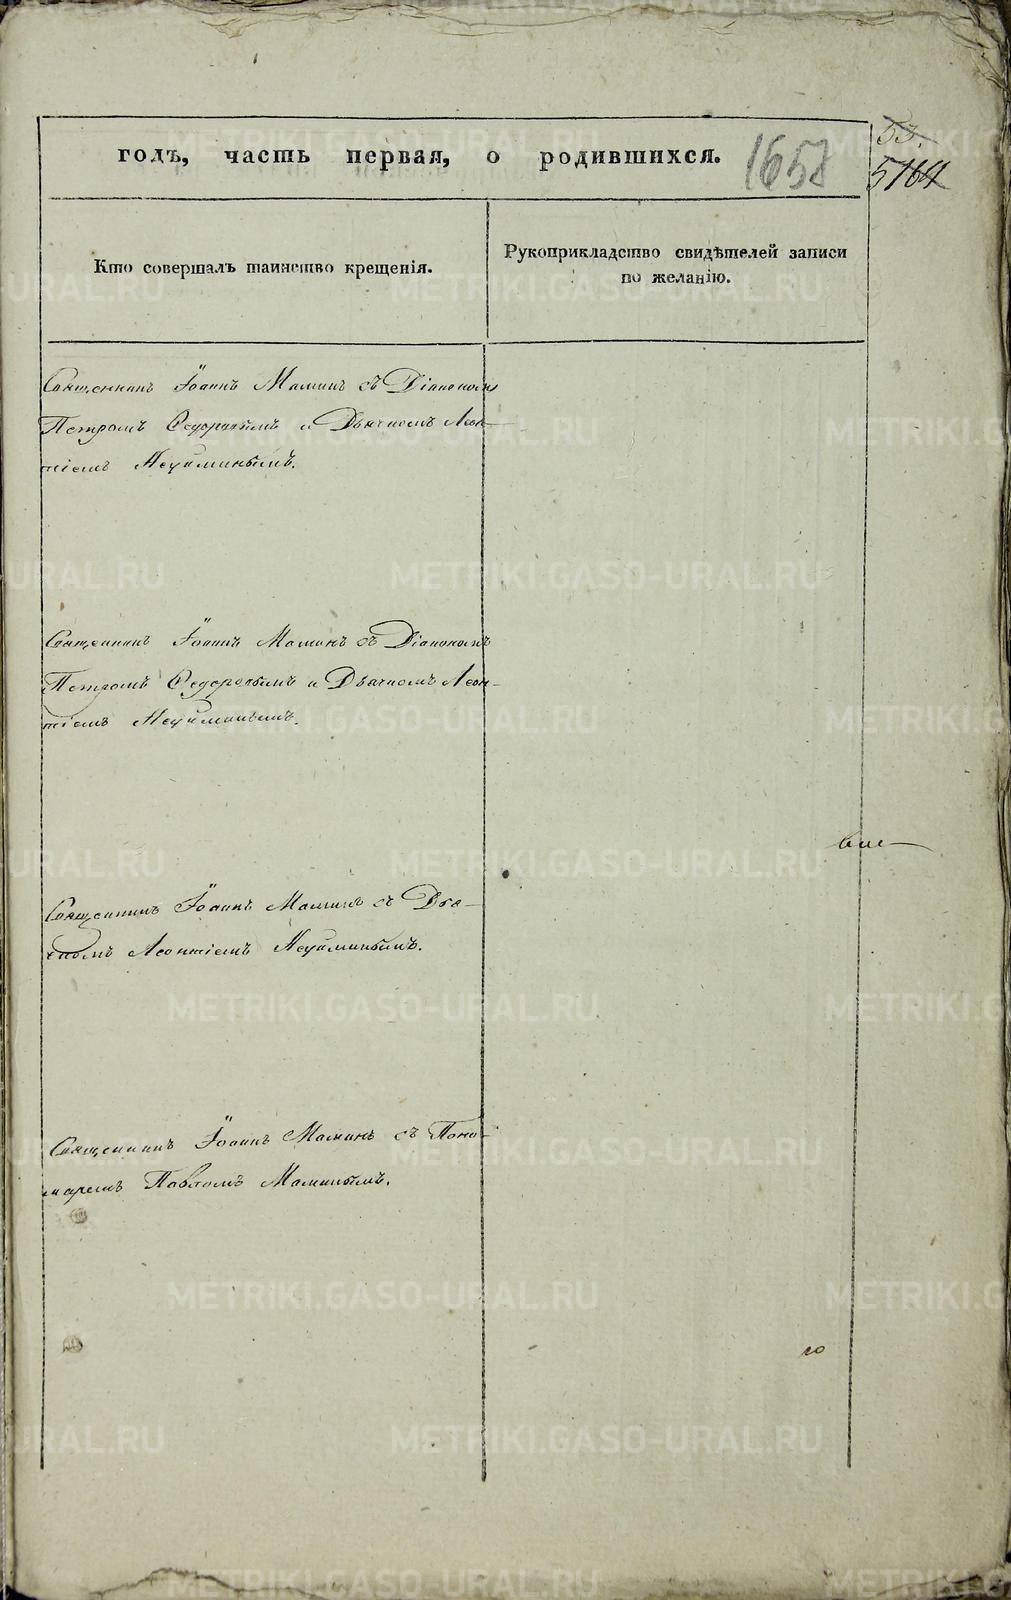 годъ, часть первая, о родившихся.
53.
5164
Кто совершалъ таинство крещенія.
Рукоприкладство свидѣтелей записи
по желанію.
Священникъ Іоаннъ Маминъ съ Діакономъ
Петромъ Ѳедоровымъ и Дьячкомъ Леон-
тіемъ Неуйминымъ.
Священникъ Іоаннъ Маминъ съ Діакономъ
Петромъ Ѳедоровымъ и Дьячкомъ Леон-
тіемъ Неуйминымъ.
Священникъ Іоаннъ Маминъ съ Дья-
чкомъ Леонтіемъ Неуйминымъ.
Священникъ Іоаннъ Маминъ съ Поно-
маремъ Павломъ Маминымъ.
METRIKI.GASO-URAL.RU